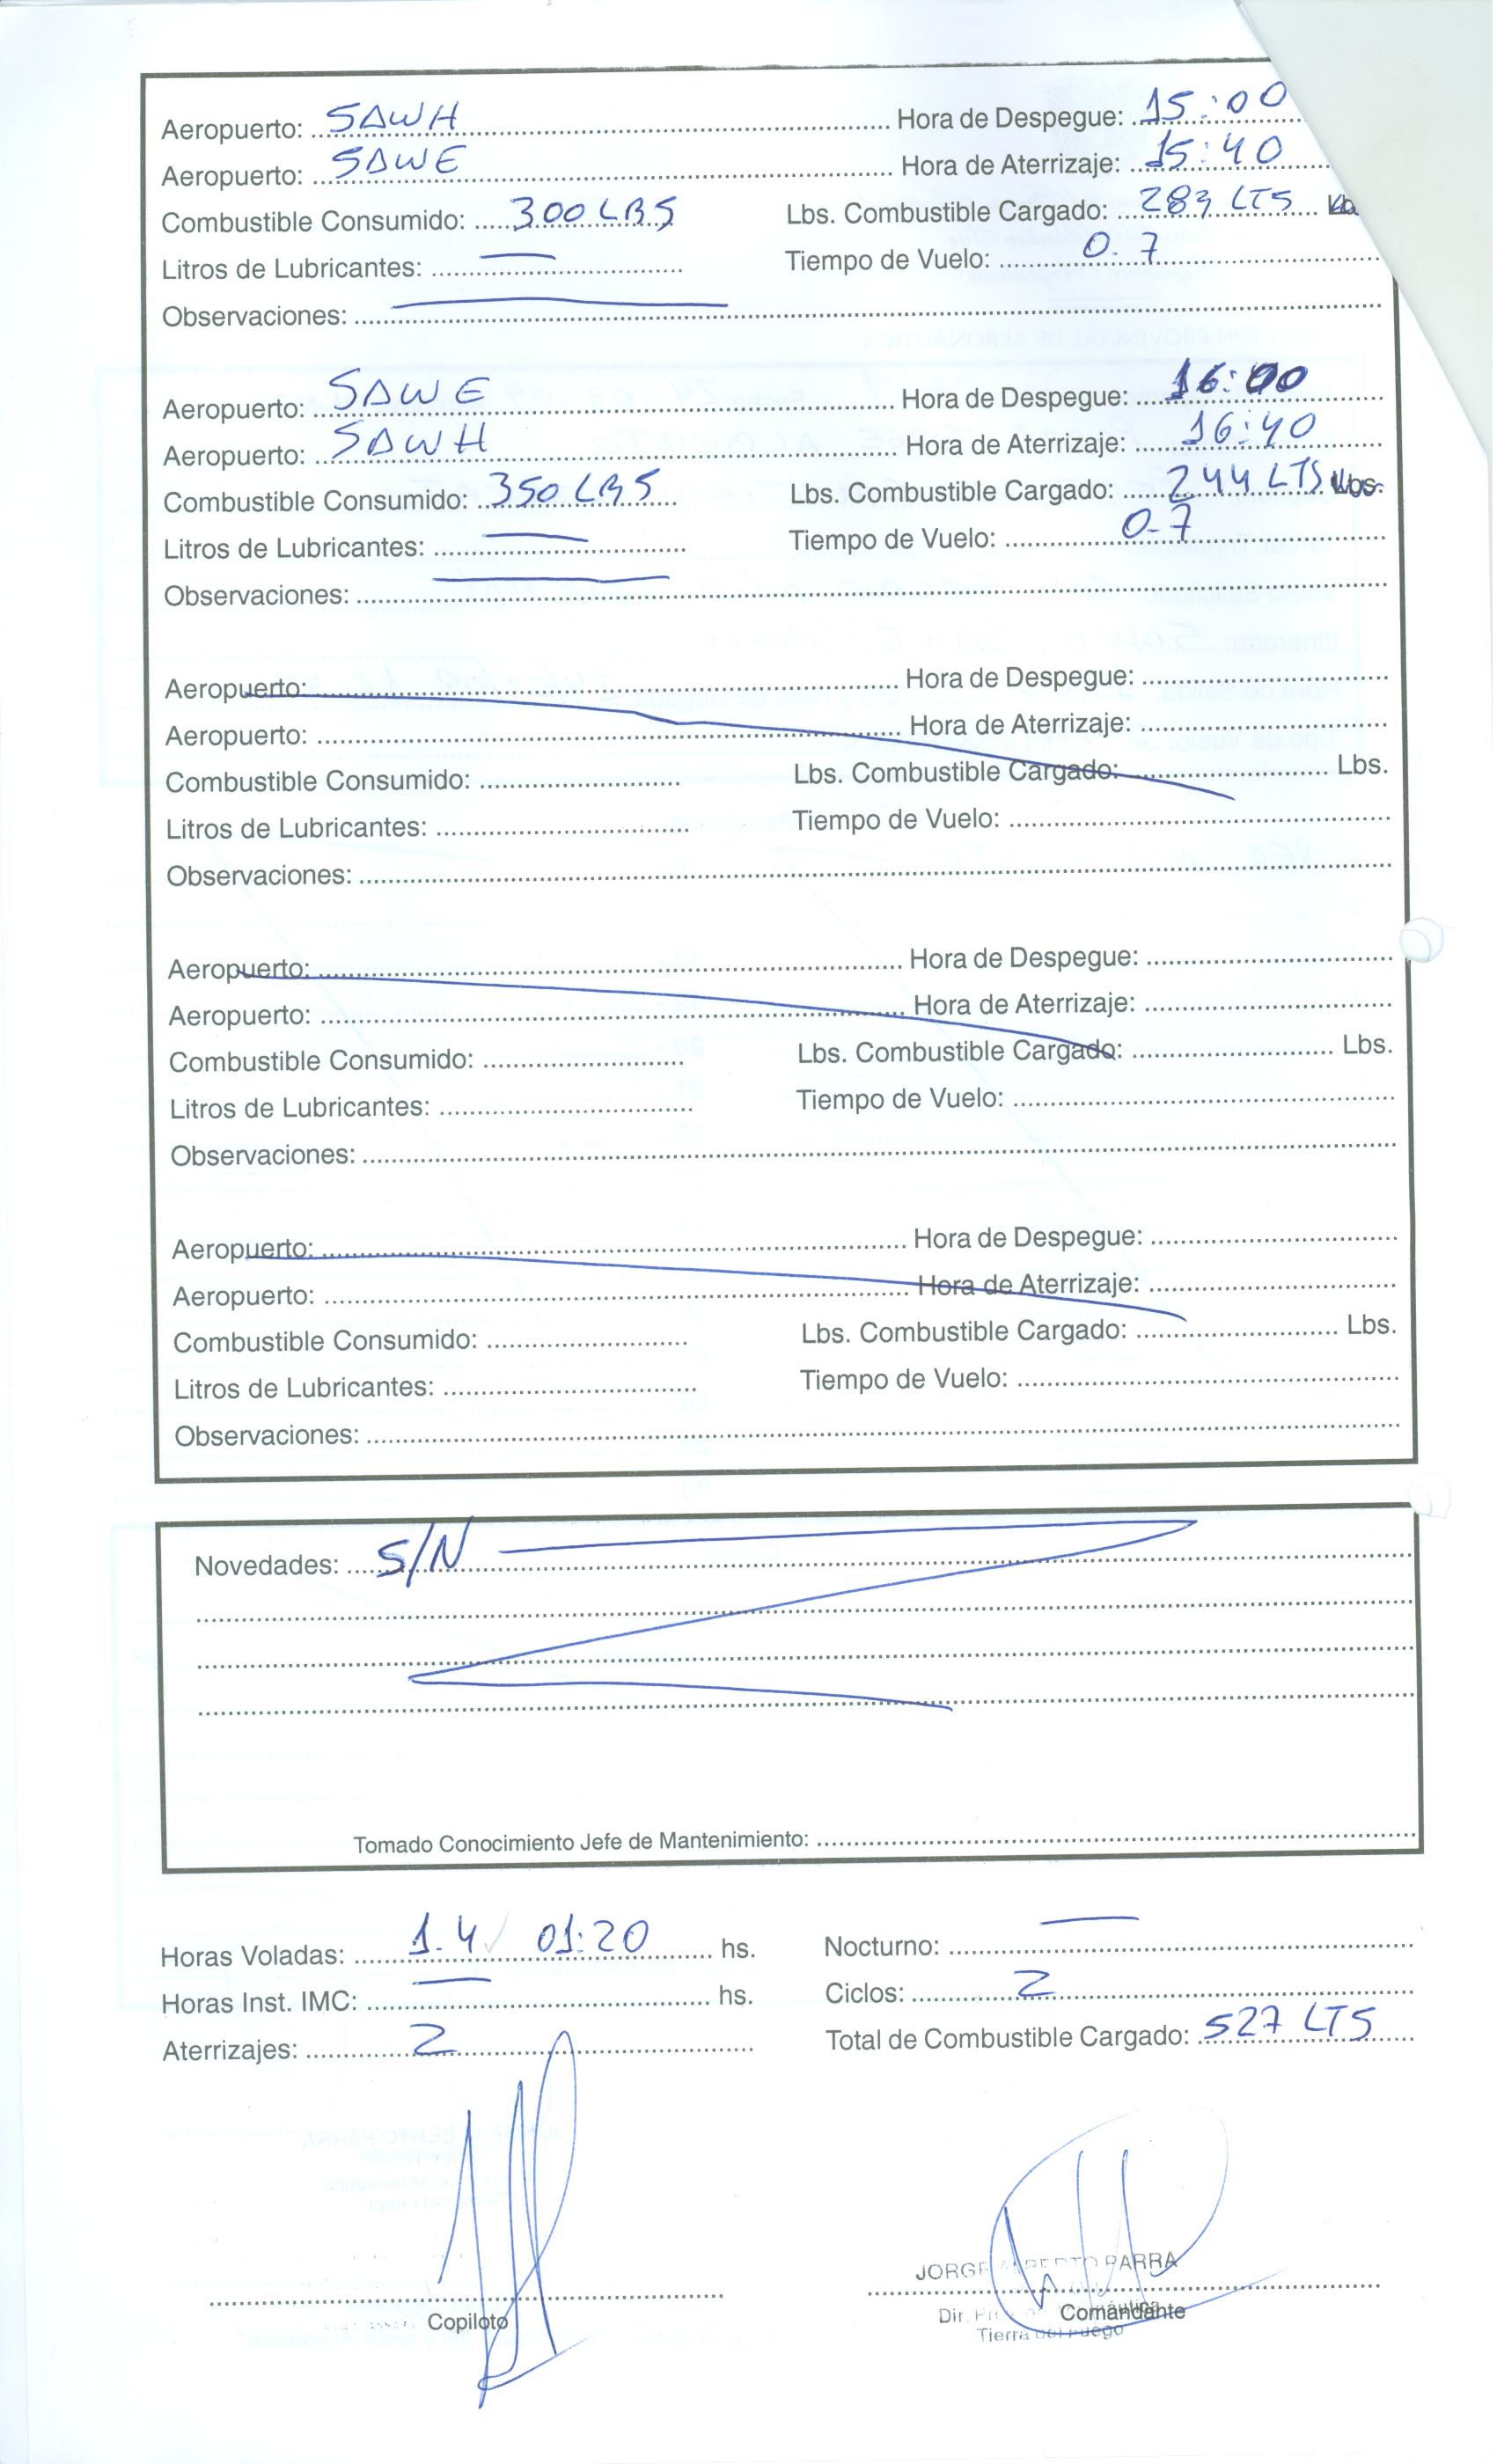 Aeropuerto: SAWH Hora de Despegue: 15:00
Aeropuerto: SAWE Hora de Aterrizaje: 15:40
Combustible Consumido: 300 LBS Lbs. Combustible Cargado: 283 LTS
Litros de Lubricantes: Tiempo de Vuelo: 0.7
Observaciones:
Aeropuerto: SAWE Hora de Despegue: 16:00
Aeropuerto: SAWH Hora de Aterrizaje: 16:40
Combustible Consumido: 350 LBS Lbs. Combustible Cargado: 244 LTS Lbs.
Litros de Lubricantes: Tiempo de Vuelo: 0.7
Observaciones:
Aeropuerto: Hora de Despegue:
Aeropuerto: Hora de Aterrizaje:
Combustible Consumido: Lbs. Combustible Cargado: Lbs.
Litros de Lubricantes: Tiempo de Vuelo:
Observaciones:
Aeropuerto: Hora de Despegue:
Aeropuerto: Hora de Aterrizaje:
Combustible Consumido: Lbs. Combustible Cargado: Lbs.
Litros de Lubricantes: Tiempo de Vuelo:
Observaciones:
Aeropuerto: Hora de Despegue:
Aeropuerto: Hora de Aterrizaje:
Combustible Consumido: Lbs. Combustible Cargado: Lbs.
Litros de Lubricantes: Tiempo de Vuelo:
Observaciones:
Novedades: S/N
Tomado Conocimiento Jefe de Mantenimiento:
Horas Voladas: 1.4 01:20 hs. Nocturno:
Horas Inst. IMC: hs. Ciclos: 2
Aterrizajes: 2 Total de Combustible Cargado: 527 LTS
JORGE ALBERTO PARRA
Copiloto Dir. Comandante
Tierra del Fuego